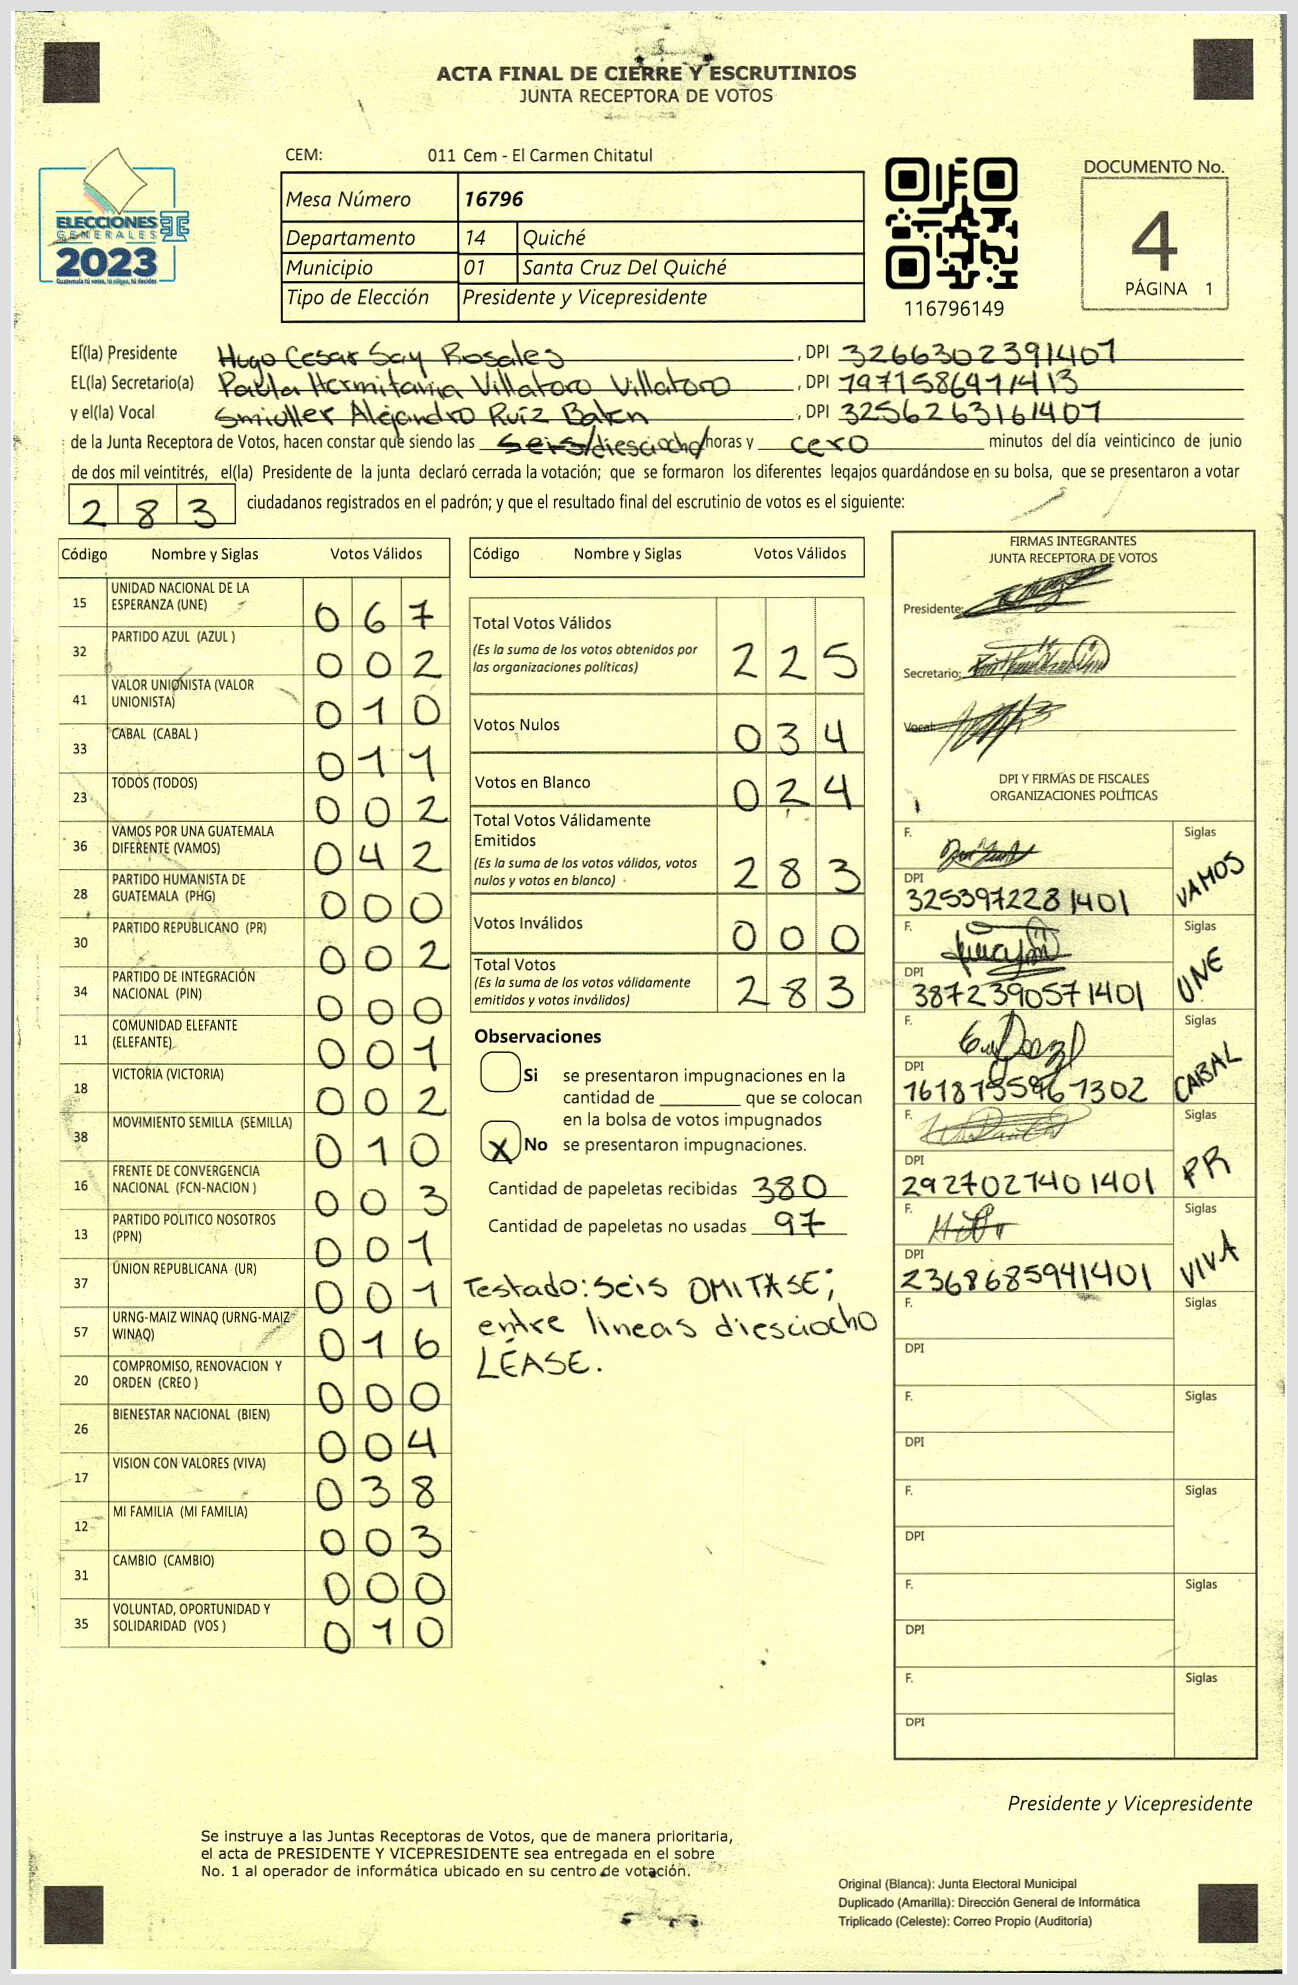 ACTA FINAL DE CIERRE Y ESCRUTINIOS
JUNTA RECEPTORA DE VOTOS
CEM: 011 Cem - El Carmen Chitatul
DOCUMENTO No.
4
PÁGINA 1
ELECCIONES
GENERALES
2023
Guatemala tú votas, tú eliges, tú decides
Mesa Número 16796
Departamento 14 Quiché
Municipio 01 Santa Cruz Del Quiché
Tipo de Elección Presidente y Vicepresidente
116796149
El(la) Presidente Hugo Cesar Say Rosales, DPI 3266302391407
EL(la) Secretario(a) Paula Hermitania Villatoro Villatoro, DPI 1971586471413
y el(la) Vocal Smiuller Alejandro Ruíz Baten, DPI 3256263161407
de la Junta Receptora de Votos, hacen constar que siendo las seis/diesciocho/ horas y cero minutos del día veinticinco de junio
de dos mil veintitrés, el(la) Presidente de la junta declaró cerrada la votación; que se formaron los diferentes legajos guardándose en su bolsa, que se presentaron a votar
283 ciudadanos registrados en el padrón; y que el resultado final del escrutinio de votos es el siguiente:
Código Nombre y Siglas Votos Válidos
15 UNIDAD NACIONAL DE LA
ESPERANZA (UNE) 067
32 PARTIDO AZUL (AZUL ) 002
41 VALOR UNIONISTA (VALOR
UNIONISTA) 010
33 CABAL (CABAL ) 011
23 TODOS (TODOS) 002
36 VAMOS POR UNA GUATEMALA
DIFERENTE (VAMOS) 042
28 PARTIDO HUMANISTA DE
GUATEMALA (PHG) 000
30 PARTIDO REPUBLICANO (PR) 002
34 PARTIDO DE INTEGRACIÓN
NACIONAL (PIN) 000
11 COMUNIDAD ELEFANTE
(ELEFANTE) 001
18 VICTORIA (VICTORIA) 002
38 MOVIMIENTO SEMILLA (SEMILLA) 010
16 FRENTE DE CONVERGENCIA
NACIONAL (FCN-NACION ) 003
13 PARTIDO POLITICO NOSOTROS
(PPN) 001
37 UNION REPUBLICANA (UR) 001
57 URNG-MAIZ WINAQ (URNG-MAIZ
WINAQ) 016
20 COMPROMISO, RENOVACION Y
ORDEN (CREO ) 000
26 BIENESTAR NACIONAL (BIEN) 004
17 VISION CON VALORES (VIVA) 038
12 MI FAMILIA (MI FAMILIA) 003
31 CAMBIO (CAMBIO) 000
35 VOLUNTAD, OPORTUNIDAD Y
SOLIDARIDAD (VOS ) 010
Código Nombre y Siglas Votos Válidos
Total Votos Válidos
(Es la suma de los votos obtenidos por
las organizaciones políticas) 225
Votos Nulos 034
Votos en Blanco 024
Total Votos Válidamente
Emitidos
(Es la suma de los votos válidos, votos
nulos y votos en blanco) 283
Votos Inválidos 000
Total Votos
(Es la suma de los votos válidamente
emitidos y votos inválidos) 283
Observaciones
Si se presentaron impugnaciones en la
cantidad de ________ que se colocan
en la bolsa de votos impugnados
X No se presentaron impugnaciones.
Cantidad de papeletas recibidas 380
Cantidad de papeletas no usadas 97
Testado: seis OMITASE;
entre lineas diesciocho
LÉASE.
FIRMAS INTEGRANTES
JUNTA RECEPTORA DE VOTOS
Presidente:
Secretario:
Vocal:
DPI Y FIRMAS DE FISCALES
ORGANIZACIONES POLÍTICAS
F. Siglas
DPI 3253972281401 VAMOS
F. Siglas
DPI 3872390571401 UNE
F. Siglas
DPI CABAL
F. Siglas
DPI 2927027401401 PR
F. Siglas
DPI 2368685941401 VIVA
F. Siglas
DPI
F. Siglas
DPI
F. Siglas
DPI
F. Siglas
DPI
F. Siglas
DPI
Presidente y Vicepresidente
Se instruye a las Juntas Receptoras de Votos, que de manera prioritaria,
el acta de PRESIDENTE Y VICEPRESIDENTE sea entregada en el sobre
No. 1 al operador de informática ubicado en su centro de votación.
Original (Blanca): Junta Electoral Municipal
Duplicado (Amarilla): Dirección General de Informática
Triplicado (Celeste): Correo Propio (Auditoría)